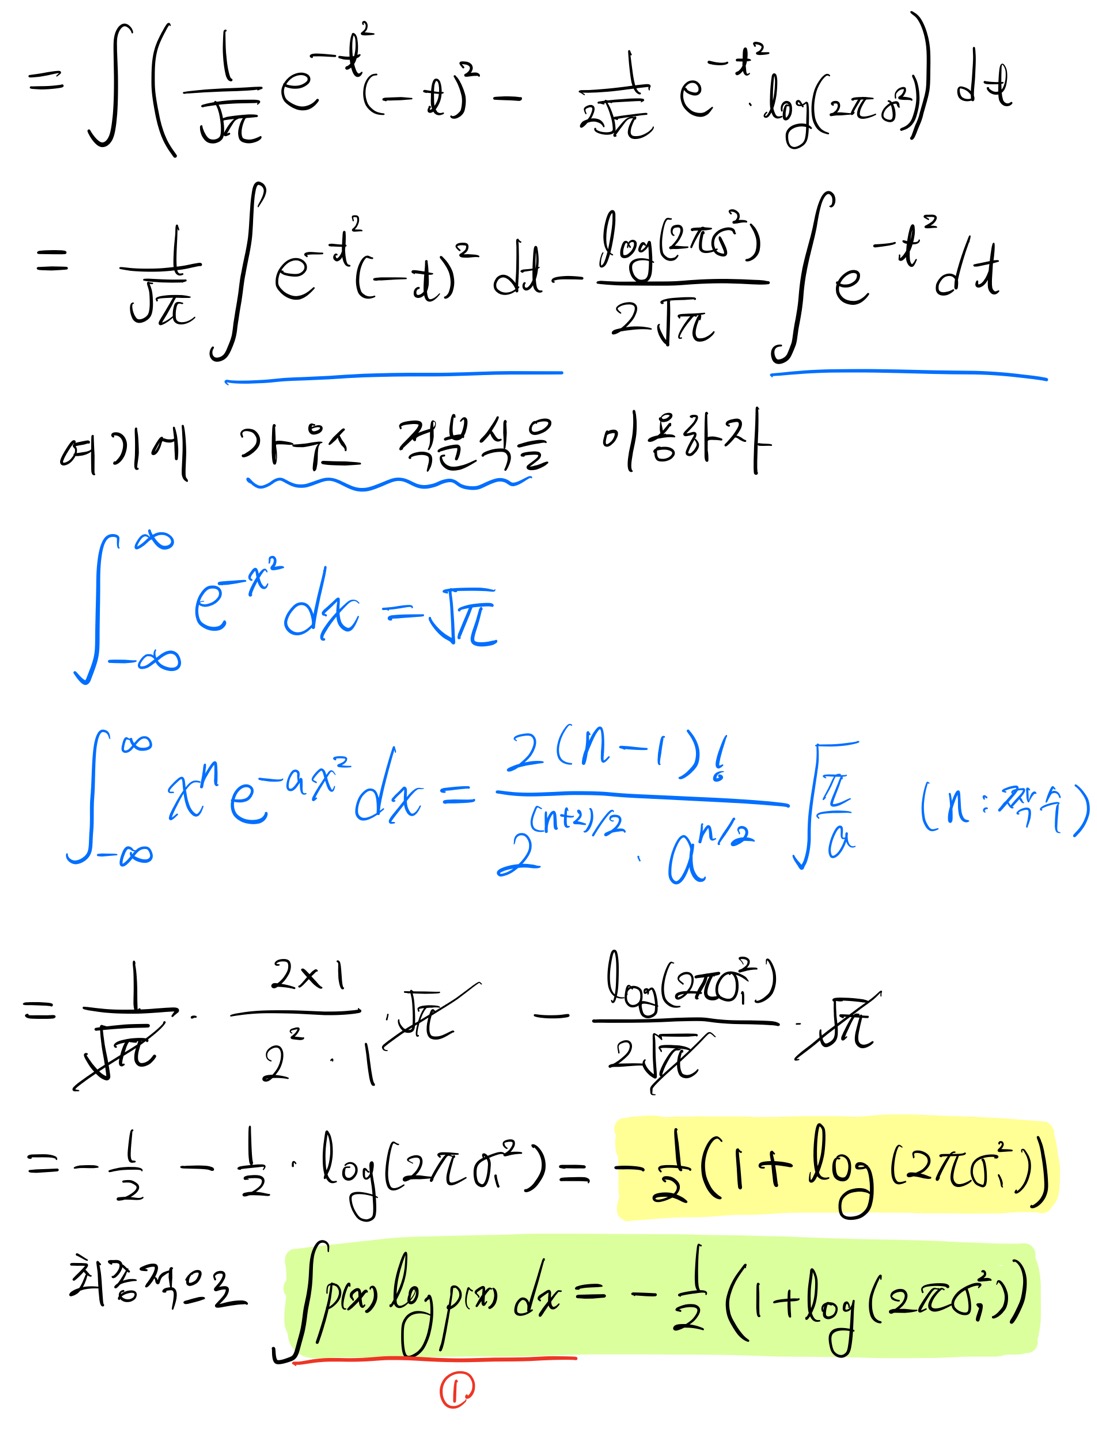 = ∫ ( 1/√π e^{-t²} (-t)² - 1/(2√π) e^{-t²} · log(2πσ²) ) dt
= 1/√π ∫ e^{-t²} (-t)² dt - log(2πσ²)/(2√π) ∫ e^{-t²} dt
여기에 가우스 적분식을 이용하자
∫_{-∞}^{∞} e^{-x²} dx = √π
∫_{-∞}^{∞} x^n e^{-ax²} dx = 2(n-1)! / (2^{(n+2)/2} · a^{n/2}) √(π/a) (n : 짝수)
= 1/√π · (2×1)/(2² · 1) · √π - log(2πσ₁²)/(2√π) · √π
= -1/2 - 1/2 · log(2πσ₁²) = -1/2 (1 + log(2πσ₁²))
최종적으로 ∫ p(x) log p(x) dx = -1/2 (1 + log(2πσ₁²))
①